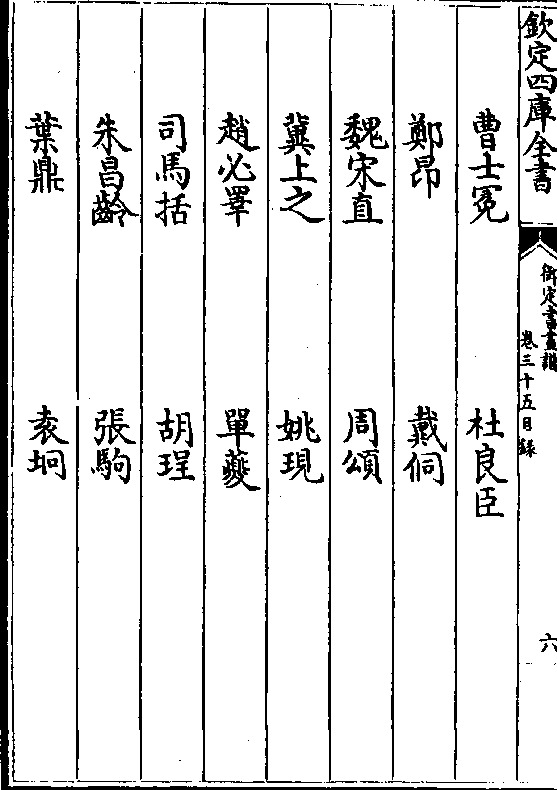 欽定四庫全書
御定書畫譜
卷三十五目錄
六
曹士冕 杜良臣
鄭昂 戴侗
魏宋直 周頌
冀上之 姚現
趙必睪 單夔
司馬括 胡珵
朱昌齡 張駒
葉鼎 袁坰